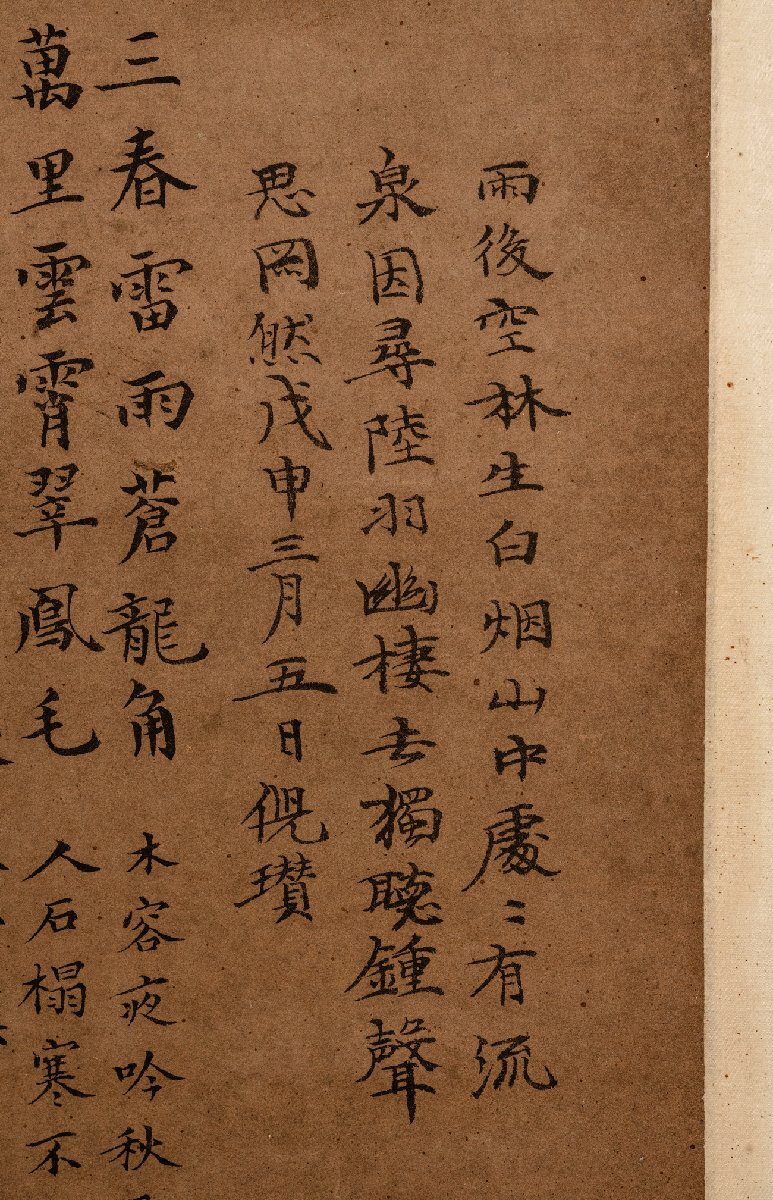 雨後空林生白烟山中處〻有流
泉因尋陸羽幽棲去獨聽鍾聲
思罔然戊申三月五日倪瓚
三春雷雨蒼龍角
木客夜吟秋
萬里雲霄翠鳳毛
人石榻寒不